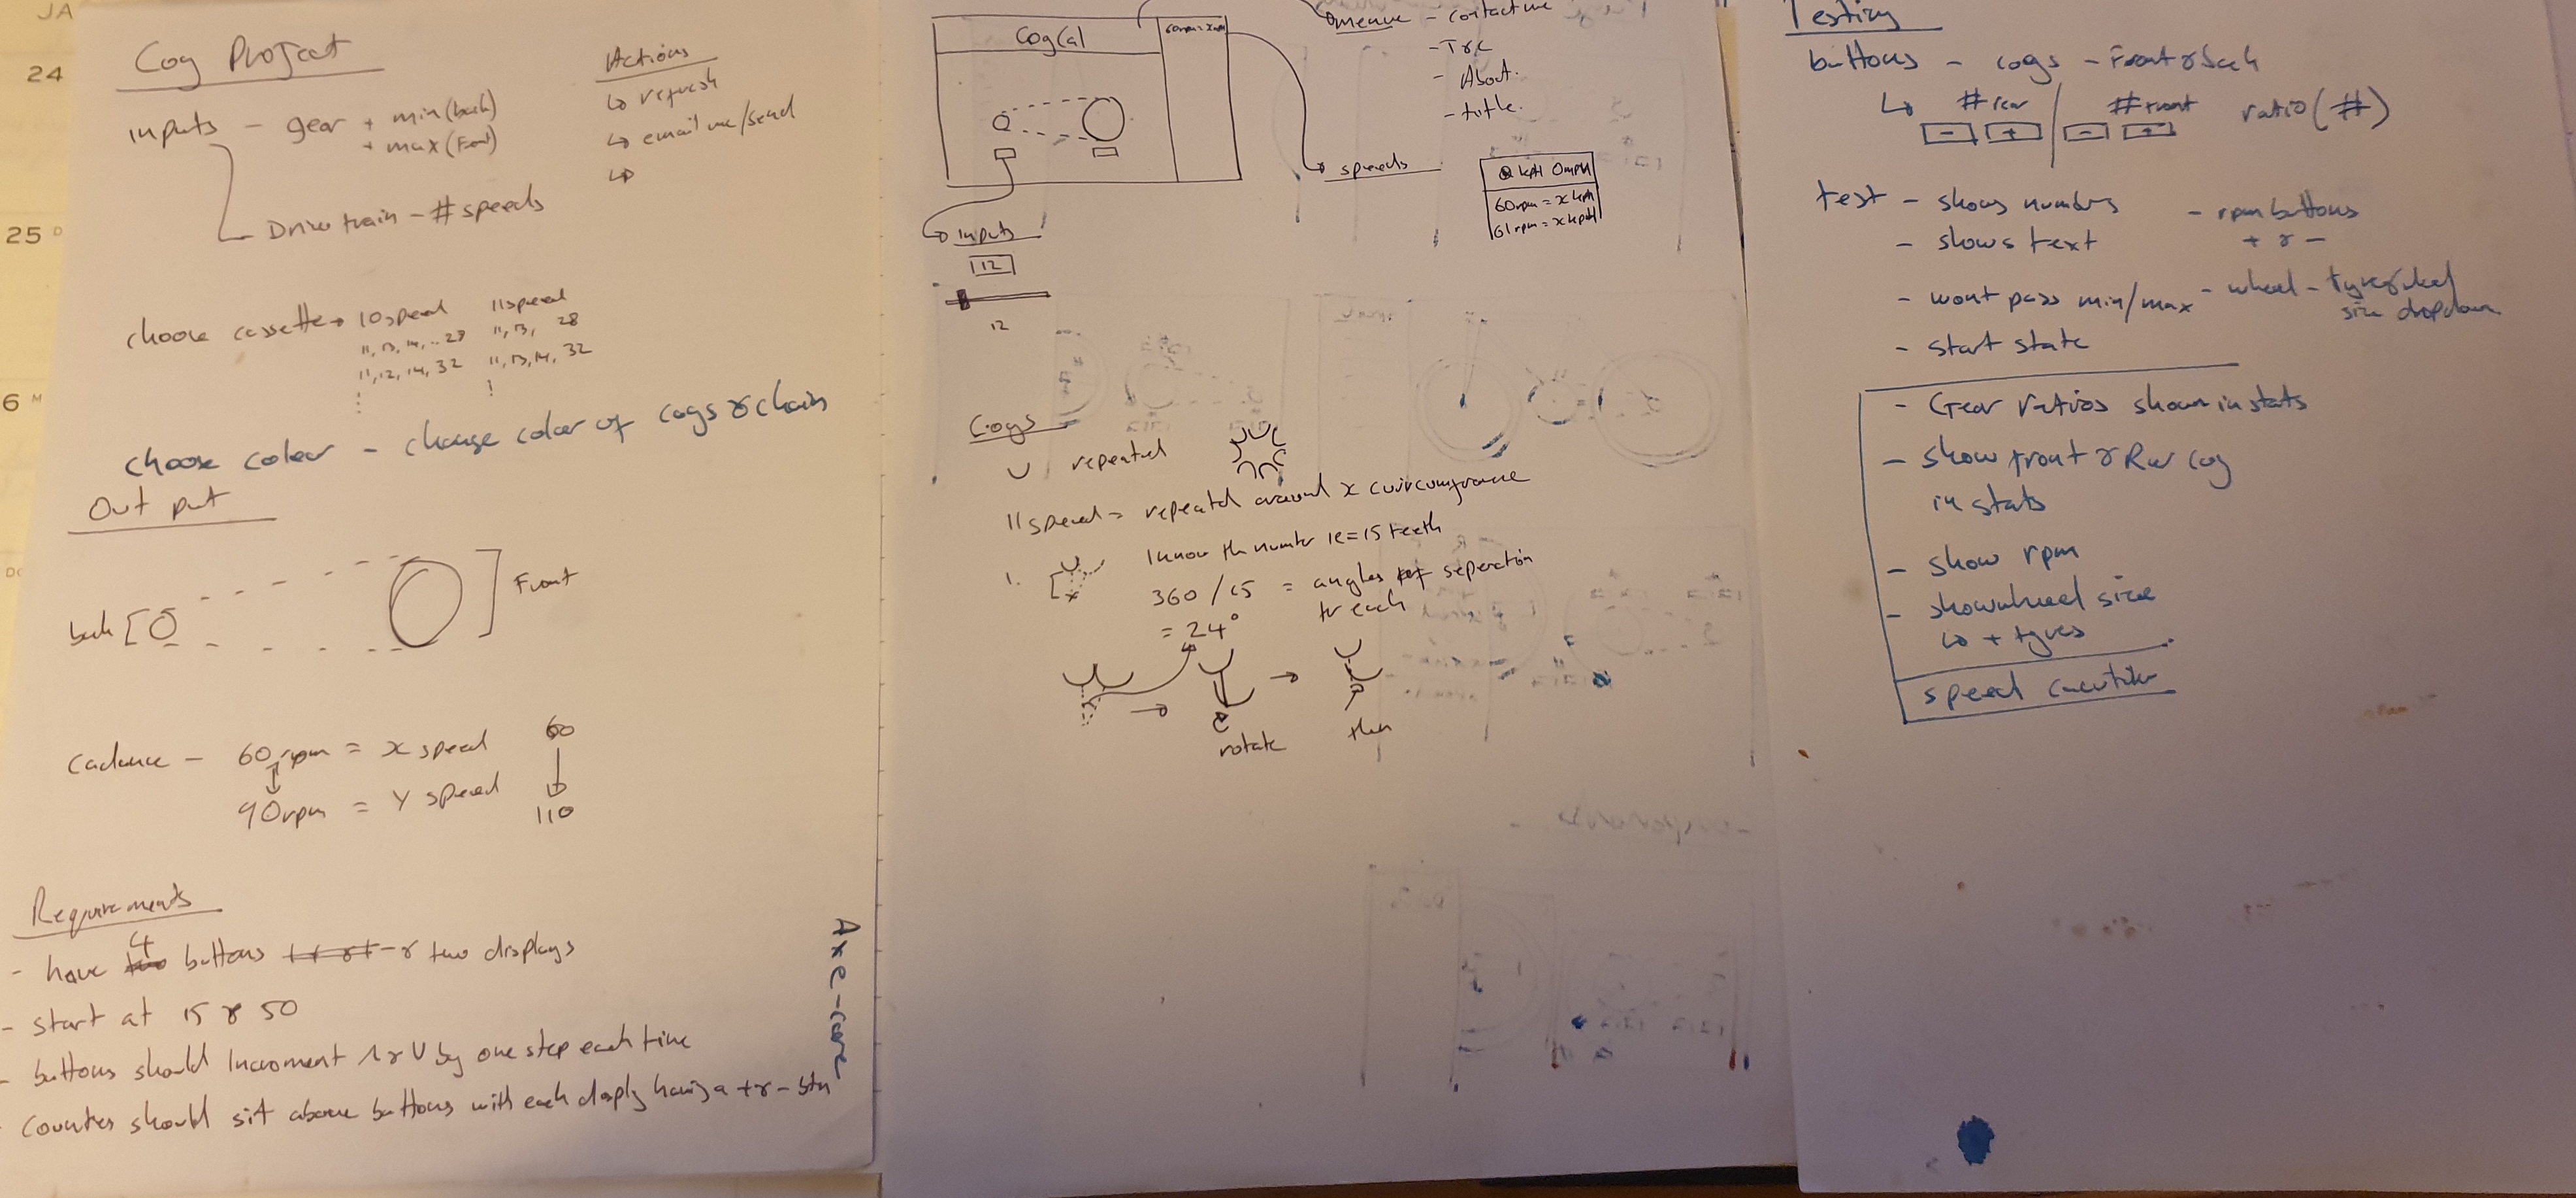 JA
24
25 D
6 M
Cog Project
inputs - gear + min (back)
+ max (Front)
Drive train - # speeds
Actions
↳ request
↳ email me/send
↳
choose cassette → 10 speed 11 speed
11, 13, 14, .. 28 11, 13, 28
11, 12, 14, 32 11, 13, 14, 32
choose colour - change color of cogs & chain
Out put
back [ ] Front
Cadance - 60 rpm = x speed 60
90 rpm = Y speed 110
Requirements
- have 4 buttons & two displays
- start at 15 & 50
- buttons should increment Λ & V by one step each time
- counters should sit above buttons with each display having a + & - btn
Axe-core
CogCal
- contact me
- T&C
- About.
- title.
speeds
kpH 0 mpH
60rpm = x kph
61 rpm = x kpH
inputs
12
12
Cogs
U repeated
11 speed = repeated around x
1. I know the number ie = 15 teeth
360 / 15 = angles of seperation
for each
= 24°
rotate then
Testing
buttons - cogs - Front & back
↳ # rear / # front ratio (#)
- + / - +
test - shows numbers - rpm buttons
- shows text + & -
- wont pass min/max - wheel - tyre & wheel
size dropdown
- start state
- Gear ratios shown in stats
- show front & Rear cog
in stats
- show rpm
- show wheel size
↳ + tyres
speed